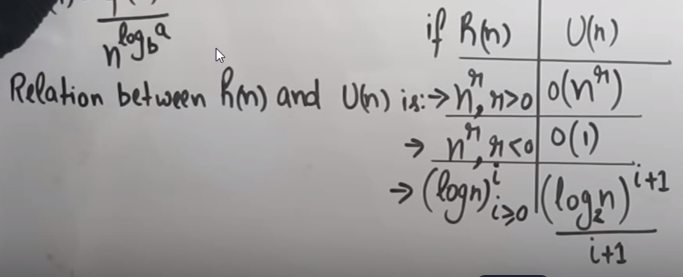 n^{log_b a}
if h(n) | U(n)
Relation between h(n) and U(n) is:→ n^r, r>0 | O(n^r)
→ n^r, r<0 | O(1)
→ (log n)^i i≥0 | (log_2 n)^{i+1}
i+1